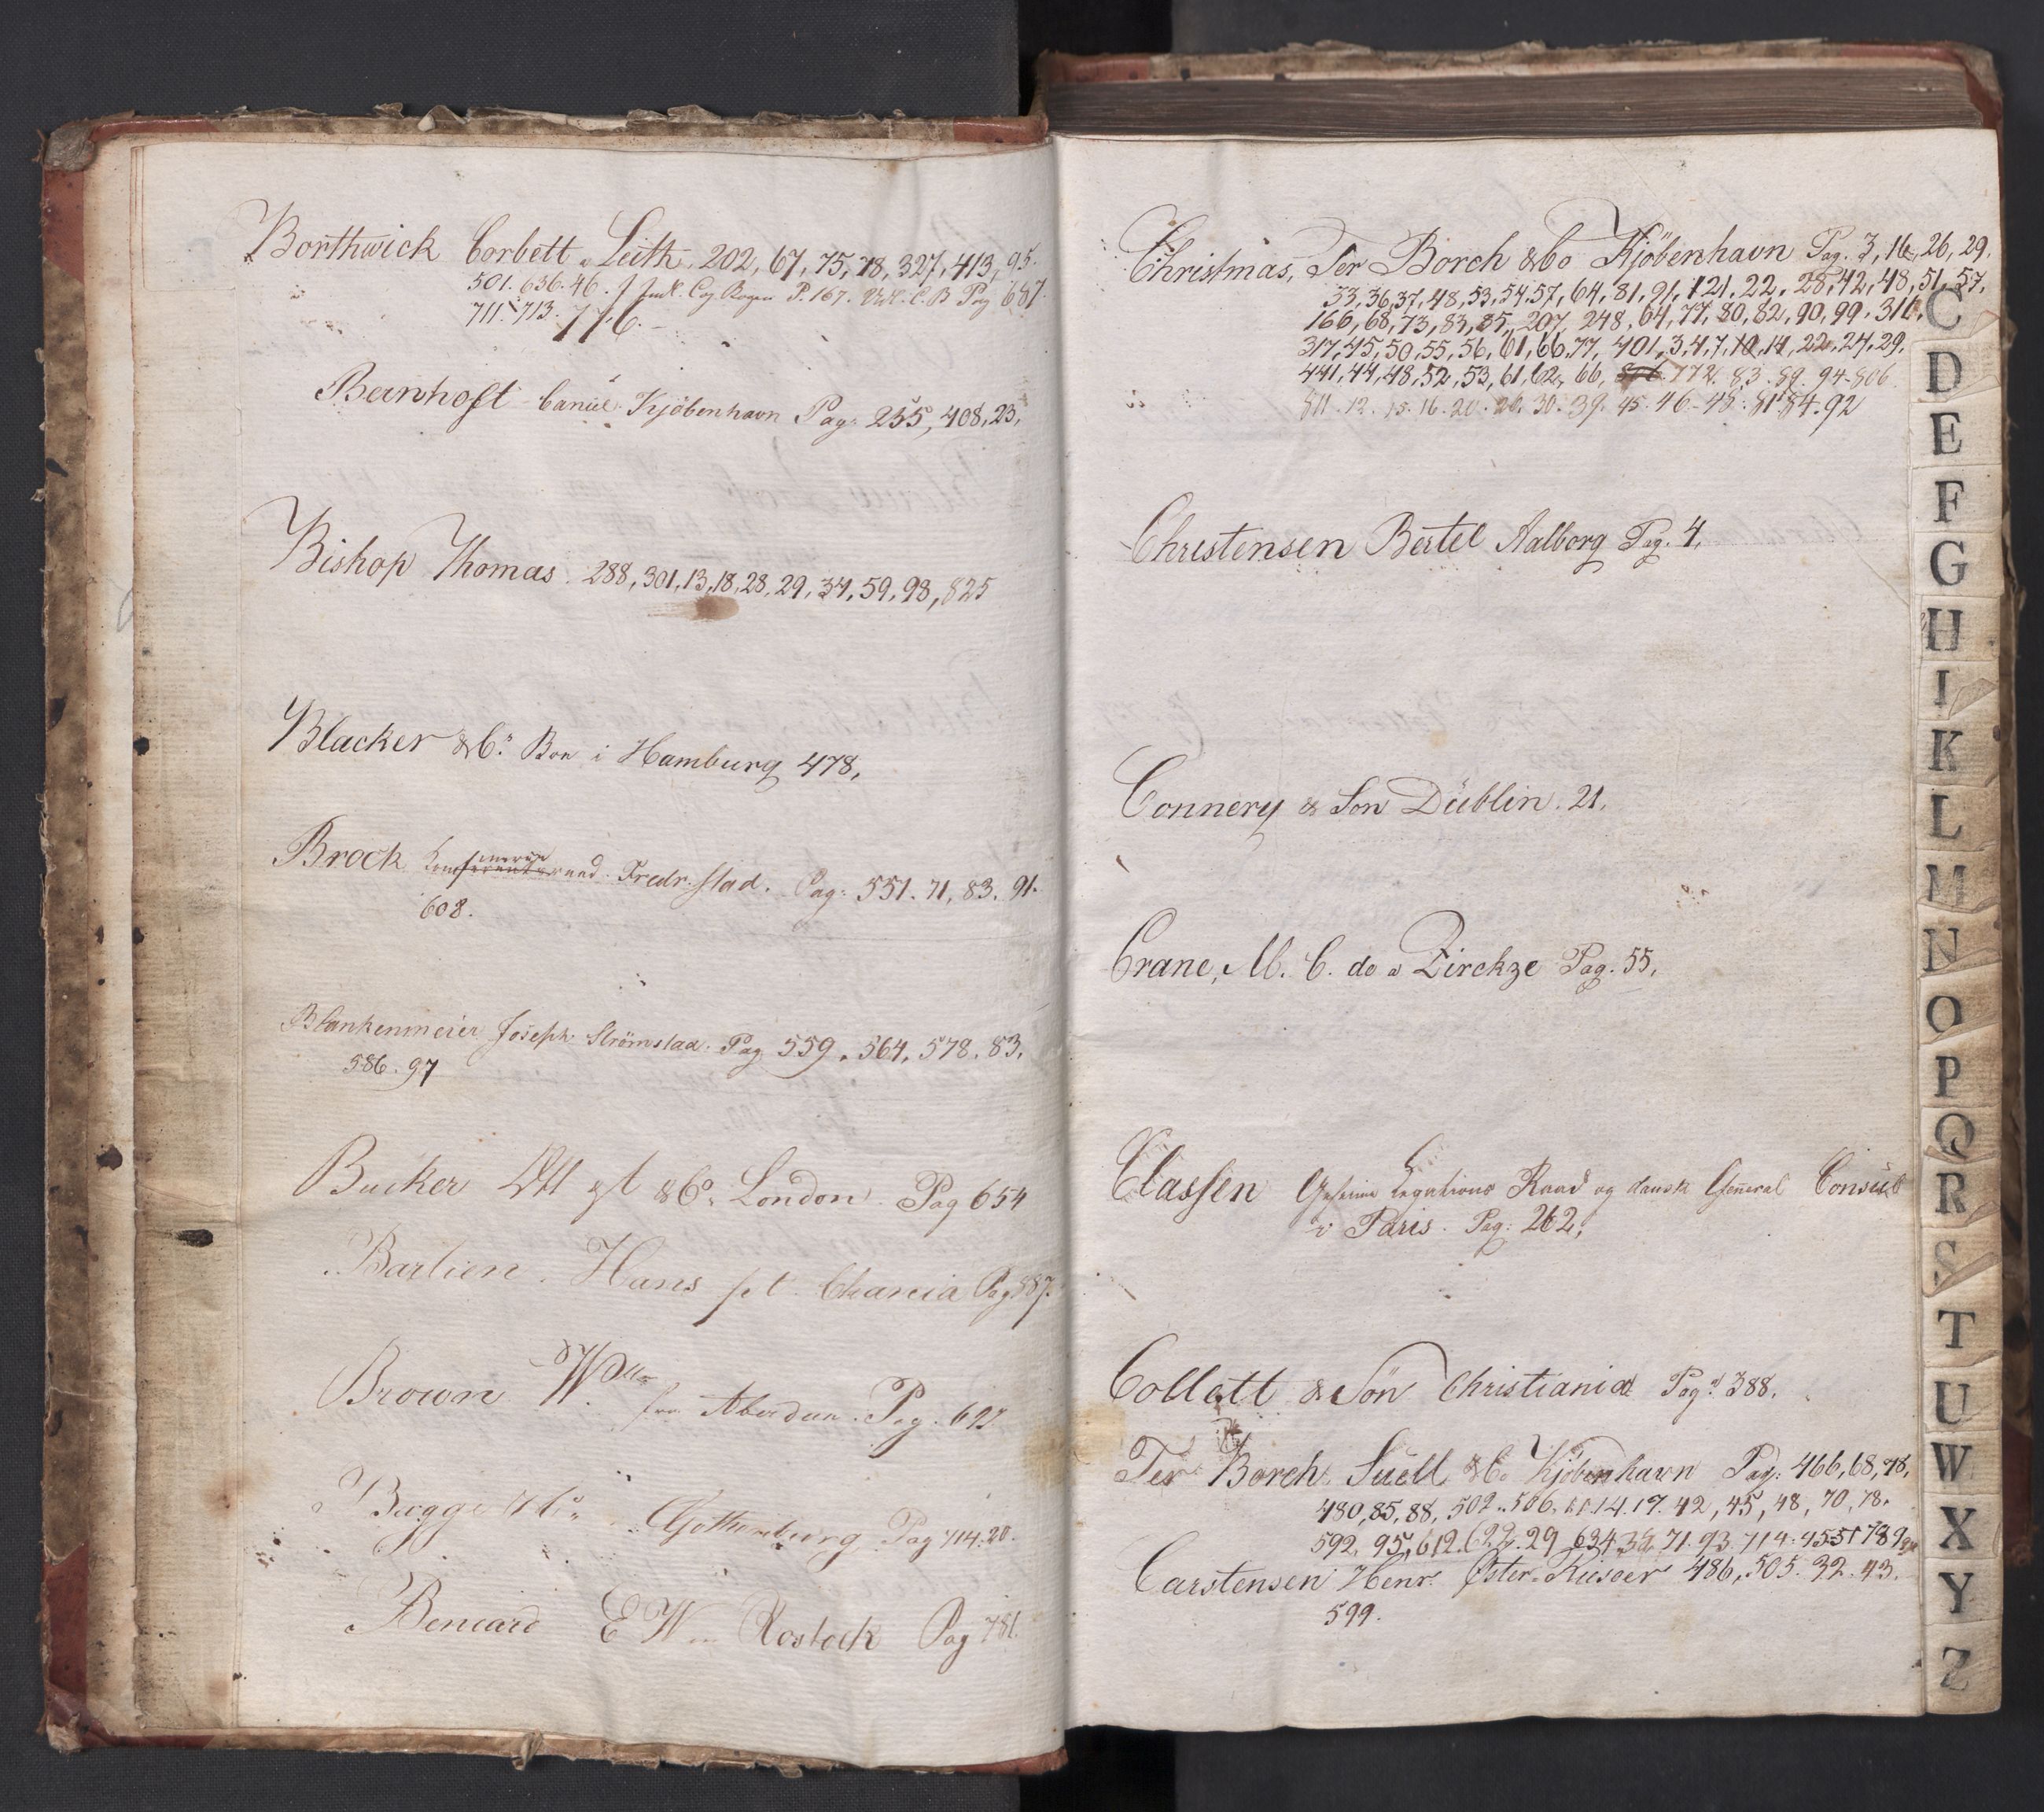 Borthwick Corbett Leith. 202, 67, 75, 78, 327, 413, 95.
501. 636. 46. P. 167. C. B Pag 687.
711. 713. 716.
Bernhoft Kjöbenhavn Pag: 255, 408, 23,
Bishop Thomas. 288, 301, 13, 18, 28, 29, 34, 59, 98, 825
Blacker & Co. i Hamburg 478,
Brock Fredr.stad. Pag: 551. 71, 83. 91.
608.
Blankenmeier Joseph Strömstad. Pag 559. 564. 578. 83.
586. 97
& Co. London. Pag 654
Barlien. Hans Pag 587.
Brown W. fra Aberdeen. Pag. 697
Bagge & Co. Gothenburg Pag 714. 20.
Bencard E W Rostock Pag 781.
Christmas, Ter Borch & Co Kjöbenhavn Pag. 3, 16, 26, 29.
33, 36, 37, 48, 53, 54, 57, 64, 81, 91, 121, 22, 28, 42, 48, 51, 57,
166, 68, 73, 83, 85, 207, 248, 64, 77, 80, 82, 90, 99. 316,
317, 45, 50, 55, 56, 61, 66, 77, 401, 3, 4, 7, 10, 14, 22, 24, 29,
441, 44, 48, 52, 53, 61, 62, 66, 772. 83. 89. 94. 806
811. 12. 15. 16. 20. 26. 30. 39. 45. 46. 48. 81. 84. 92
Christensen Bertel Aalborg Pag. 4,
Connery & Son Düblin. 21,
Crane, M. C. de Zirckze Pag. 55,
Classen Geheime Legations Raad og dansk General Consül
i Paris. Pag: 262,
Collett & Sön Christiania Pag: 388,
Ter Borch, Suell & Co Kjöbenhavn Pag: 466, 68, 78,
480, 85, 88, 502. 506. 11. 14. 17. 42, 45, 48, 70, 78.
592. 95, 612. 622. 29 634. 71. 93. 714.
Carstensen Henr. Øster-Riisoer 486, 505. 32. 43.
599.
C
D
E
F
G
H
I
K
L
M
N
O
P
Q
R
S
T
U
W
X
Y
Z